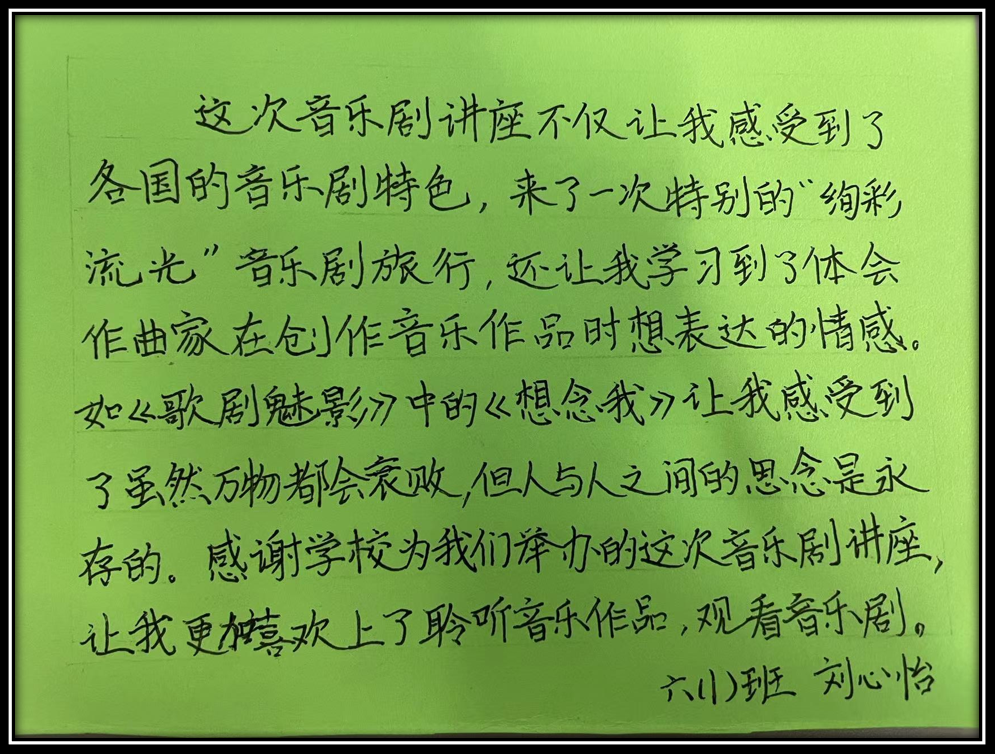 这次音乐剧讲座不仅让我感受到了
各国的音乐剧特色，来了一次特别的“绚彩
流光”音乐剧旅行，还让我学习到了体会
作曲家在创作音乐作品时想表达的情感。
如《歌剧魅影》中的《想念我》让我感受到
了虽然万物都会衰败，但人与人之间的思念是永
存的。感谢学校为我们举办的这次音乐剧讲座，
让我更加喜欢上了聆听音乐作品，观看音乐剧。
六(1)班 刘心怡